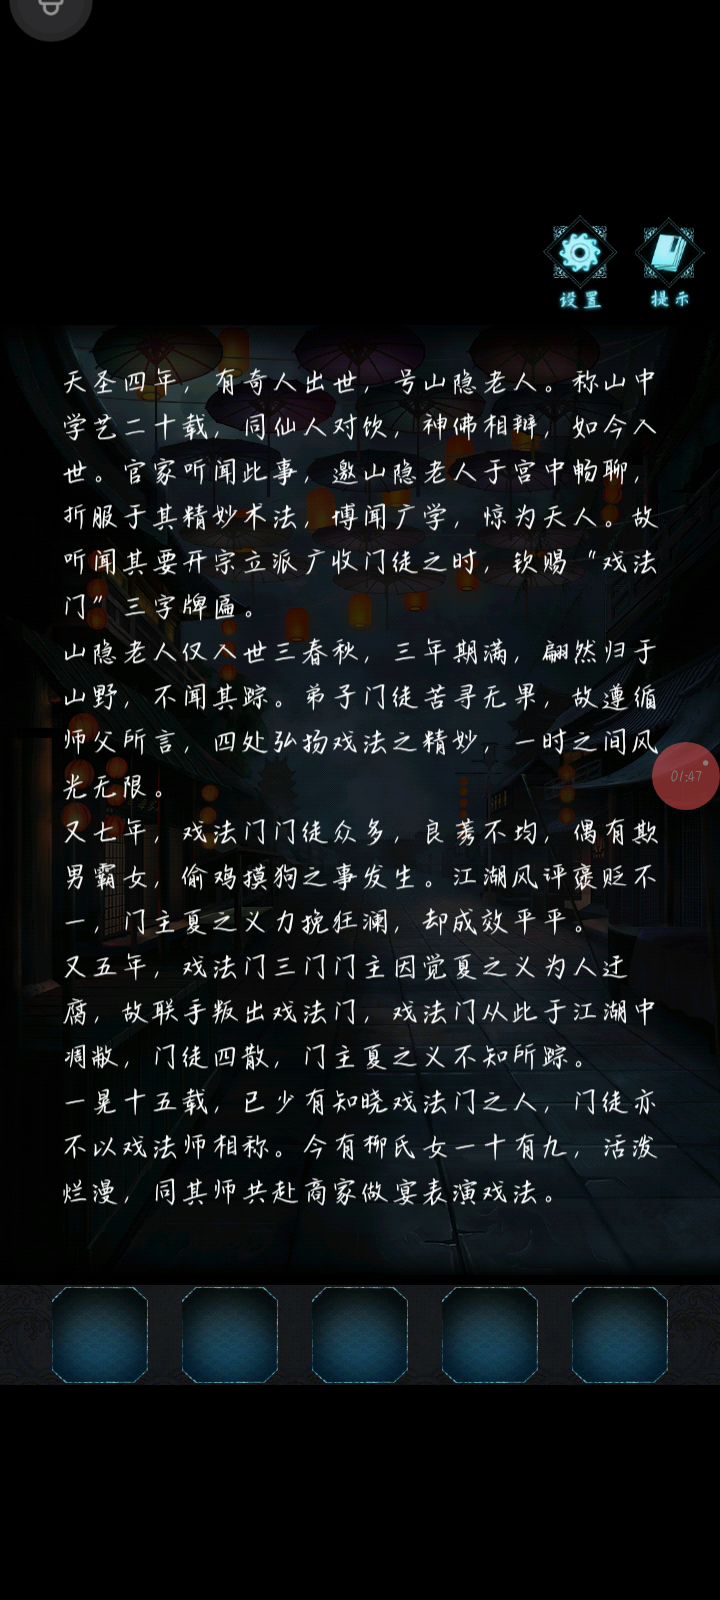 设置
提示
天圣四年，有奇人出世，号山隐老人。称山中
学艺二十载，同仙人对饮，神佛相辩，如今入
世。官家听闻此事，邀山隐老人于宫中畅聊，
折服于其精妙术法，博闻广学，惊为天人。故
听闻其要开宗立派广收门徒之时，钦赐“戏法
门”三字牌匾。
山隐老人仅入世三春秋，三年期满，翩然归于
山野，不闻其踪。弟子门徒苦寻无果，故遵循
师父所言，四处弘扬戏法之精妙，一时之间风
光无限。
又七年，戏法门门徒众多，良莠不均，偶有欺
男霸女，偷鸡摸狗之事发生。江湖风评褒贬不
一，门主夏之义力挽狂澜，却成效平平。
又五年，戏法门三门门主因觉夏之义为人迂
腐，故联手叛出戏法门，戏法门从此于江湖中
凋敝，门徒四散，门主夏之义不知所踪。
一晃十五载，已少有知晓戏法门之人，门徒亦
不以戏法师相称。今有柳氏女一十有九，活泼
烂漫，同其师共赴商家做宴表演戏法。
01:47